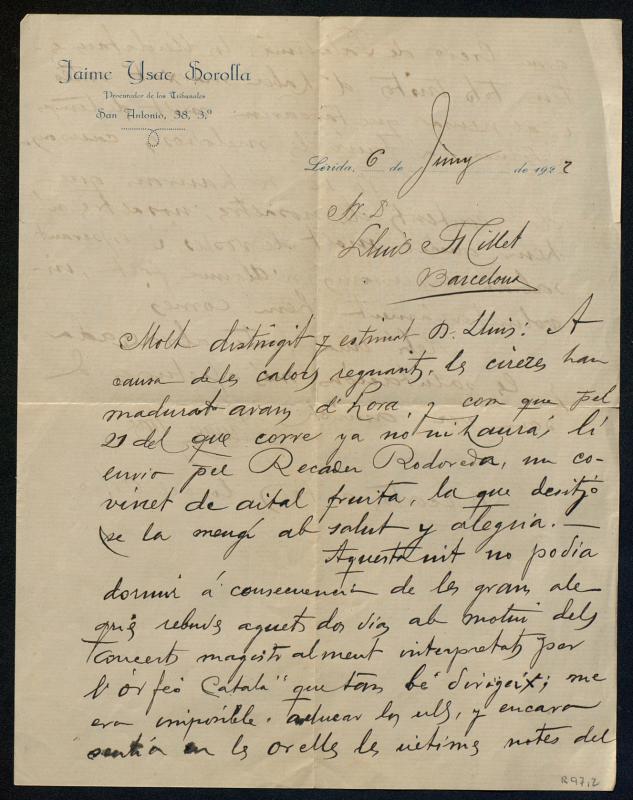 Jaime Ysac Sorolla
Procurador de los Tribunales
San Antonio, 38, 3.º
Lérida, 6 de Juny de 1922
Sr. D.
Lluis Millet
Barcelona
Molt distingit y estimat D. Lluis: A
causa de les calors regnants, les cireres han
madurat avans d'hora, y com que pel
21 del que corre ya no ni haurá, li
envio pel Recader Rodoreda, un co-
vinet de aital fruita, la que desitjo
se la mengi ab salut y alegria. —
Aquesta nit no podia
dormir á consecuencia de les grans ale
gries rebudes aquets dos dias ab motiu dels
Concerts magistralment interpretats per
l'"Orfeó Catalá" que tan bé dirigeix; me
era imposible. aducar los ulls, y encara
sentia en les orelles les ultimes notes del
R97,2